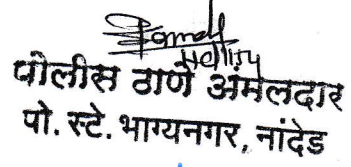 पोलीस ठाणे अंमलदार
पो. स्टे. भाग्यनगर, नांदेड